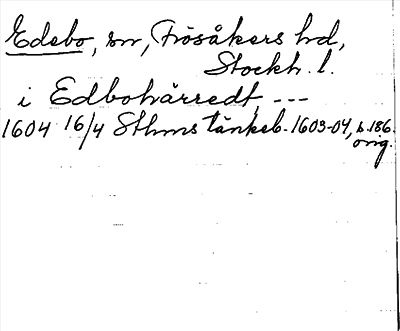 Edebo, sn, Frösåkers hd,
Stockh. l.
i Edbohärredt, ---
1604 16/4 Sthms tänkeb. 1603-04, s. 186.
orig.